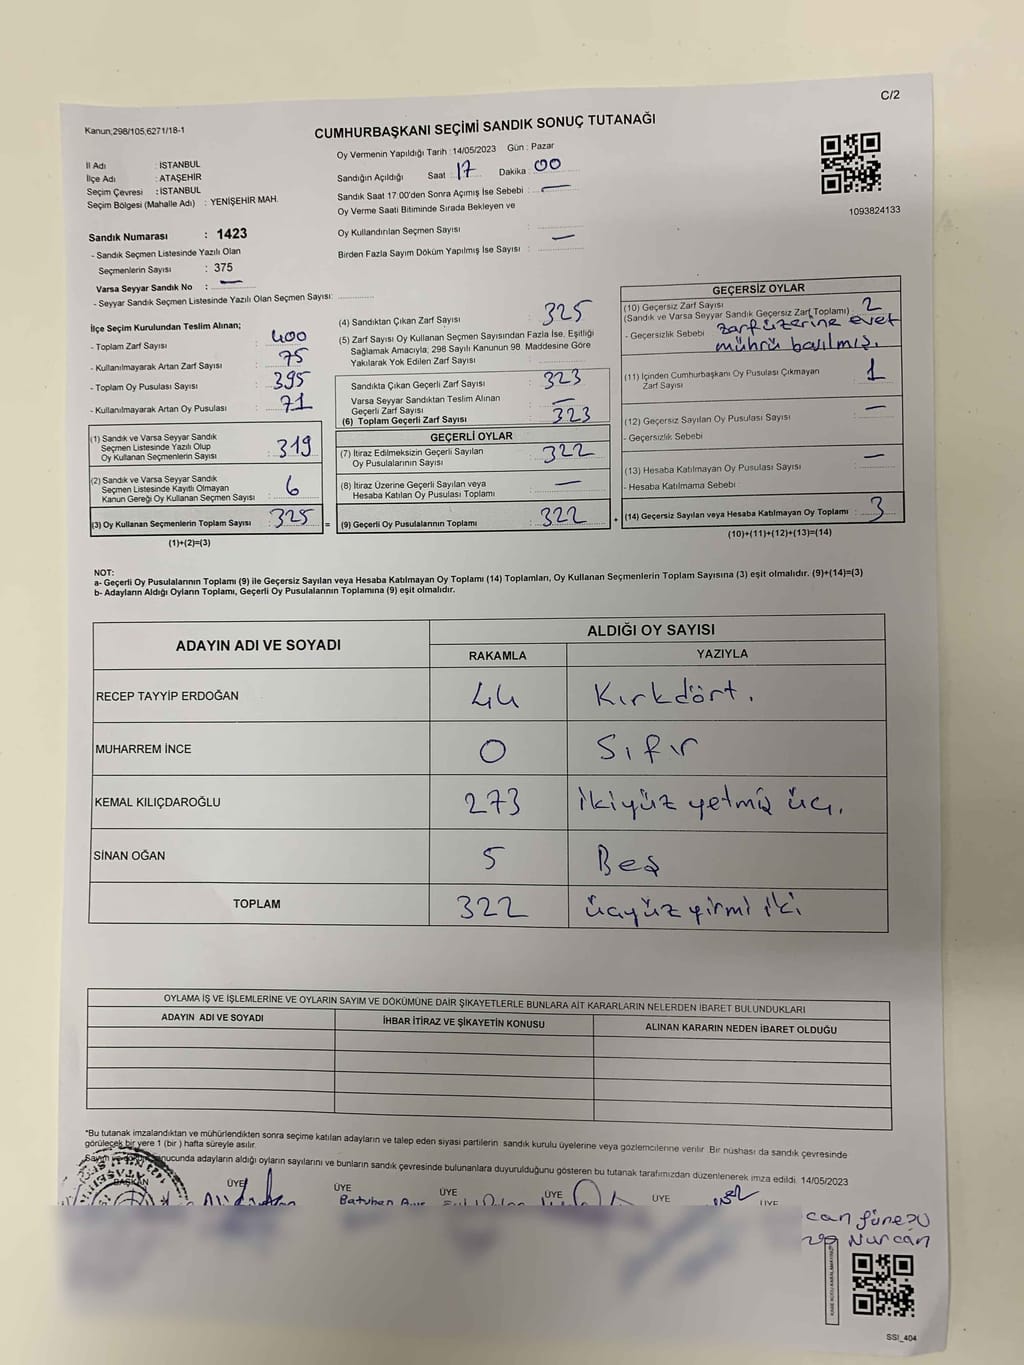 C/2
Kanun;298/105,6271/18-1
CUMHURBAŞKANI SEÇİMİ SANDIK SONUÇ TUTANAĞI
İl Adı : İSTANBUL
İlçe Adı : ATAŞEHİR
Seçim Çevresi : İSTANBUL
Seçim Bölgesi (Mahalle Adı) : YENİŞEHİR MAH.
Oy Vermenin Yapıldığı Tarih : 14/05/2023 Gün : Pazar
Sandığın Açıldığı Saat : 17 Dakika : 00
Sandık Saat 17:00'den Sonra Açımış İse Sebebi : —
Oy Verme Saati Bitiminde Sırada Bekleyen ve
Oy Kullandırılan Seçmen Sayısı :
Birden Fazla Sayım Döküm Yapılmış İse Sayısı : —
1093824133
Sandık Numarası : 1423
- Sandık Seçmen Listesinde Yazılı Olan
Seçmenlerin Sayısı : 375
Varsa Seyyar Sandık No : —
- Seyyar Sandık Seçmen Listesinde Yazılı Olan Seçmen Sayısı:
İlçe Seçim Kurulundan Teslim Alınan;
- Toplam Zarf Sayısı : 400
- Kullanılmayarak Artan Zarf Sayısı : 75
- Toplam Oy Pusulası Sayısı : 395
- Kullanılmayarak Artan Oy Pusulası : 71
(1) Sandık ve Varsa Seyyar Sandık
Seçmen Listesinde Yazılı Olup
Oy Kullanan Seçmenlerin Sayısı : 319
(2) Sandık ve Varsa Seyyar Sandık
Seçmen Listesinde Kayıtlı Olmayan
Kanun Gereği Oy Kullanan Seçmen Sayısı : 6
(3) Oy Kullanan Seçmenlerin Toplam Sayısı : 325 =
(1)+(2)=(3)
(4) Sandıktan Çıkan Zarf Sayısı : 325
(5) Zarf Sayısı Oy Kullanan Seçmen Sayısından Fazla İse, Eşitliği
Sağlamak Amacıyla; 298 Sayılı Kanunun 98. Maddesine Göre
Yakılarak Yok Edilen Zarf Sayısı :
Sandıkta Çıkan Geçerli Zarf Sayısı : 323
Varsa Seyyar Sandıktan Teslim Alınan
Geçerli Zarf Sayısı : —
(6) Toplam Geçerli Zarf Sayısı : 323
GEÇERLİ OYLAR
(7) İtiraz Edilmeksizin Geçerli Sayılan
Oy Pusulalarının Sayısı : 322
(8) İtiraz Üzerine Geçerli Sayılan veya
Hesaba Katılan Oy Pusulası Toplamı : —
(9) Geçerli Oy Pusulalarının Toplamı : 322 +
GEÇERSİZ OYLAR
(10) Geçersiz Zarf Sayısı
(Sandık ve Varsa Seyyar Sandık Geçersiz Zarf Toplamı) : 2
- Geçersizlik Sebebi : zarf üzerine evet
mührü basılmış.
(11) İçinden Cumhurbaşkanı Oy Pusulası Çıkmayan
Zarf Sayısı : 1
(12) Geçersiz Sayılan Oy Pusulası Sayısı : —
- Geçersizlik Sebebi
(13) Hesaba Katılmayan Oy Pusulası Sayısı : —
- Hesaba Katılmama Sebebi :
(14) Geçersiz Sayılan veya Hesaba Katılmayan Oy Toplamı : 3
(10)+(11)+(12)+(13)=(14)
NOT:
a- Geçerli Oy Pusulalarının Toplamı (9) ile Geçersiz Sayılan veya Hesaba Katılmayan Oy Toplamı (14) Toplamları, Oy Kullanan Seçmenlerin Toplam Sayısına (3) eşit olmalıdır. (9)+(14)=(3)
b- Adayların Aldığı Oyların Toplamı, Geçerli Oy Pusulalarının Toplamına (9) eşit olmalıdır.
ADAYIN ADI VE SOYADI
ALDIĞI OY SAYISI
RAKAMLA YAZIYLA
RECEP TAYYİP ERDOĞAN 44 Kırkdört.
MUHARREM İNCE 0 Sıfır
KEMAL KILIÇDAROĞLU 273 ikiyüz yetmiş üç.
SİNAN OĞAN 5 Beş
TOPLAM 322 üçyüz yirmi iki
OYLAMA İŞ VE İŞLEMLERİNE VE OYLARIN SAYIM VE DÖKÜMÜNE DAİR ŞİKAYETLERLE BUNLARA AİT KARARLARIN NELERDEN İBARET BULUNDUKLARI
ADAYIN ADI VE SOYADI İHBAR İTİRAZ VE ŞİKAYETİN KONUSU ALINAN KARARIN NEDEN İBARET OLDUĞU
*Bu tutanak imzalandıktan ve mühürlendikten sonra seçime katılan adayların ve talep eden siyasi partilerin sandık kurulu üyelerine veya gözlemcilerine verilir. Bir nüshası da sandık çevresinde
görülecek bir yere 1 (bir) hafta süreyle asılır.
Sayım ve sonucunda adayların aldığı oyların sayılarını ve bunların sandık çevresinde bulunanlara duyurulduğunu gösteren bu tutanak tarafımızdan düzenlenerek imza edildi. 14/05/2023
BAŞKAN ÜYE ÜYE ÜYE ÜYE ÜYE ÜYE
Batuhan
can
Nurcan
SSI_404